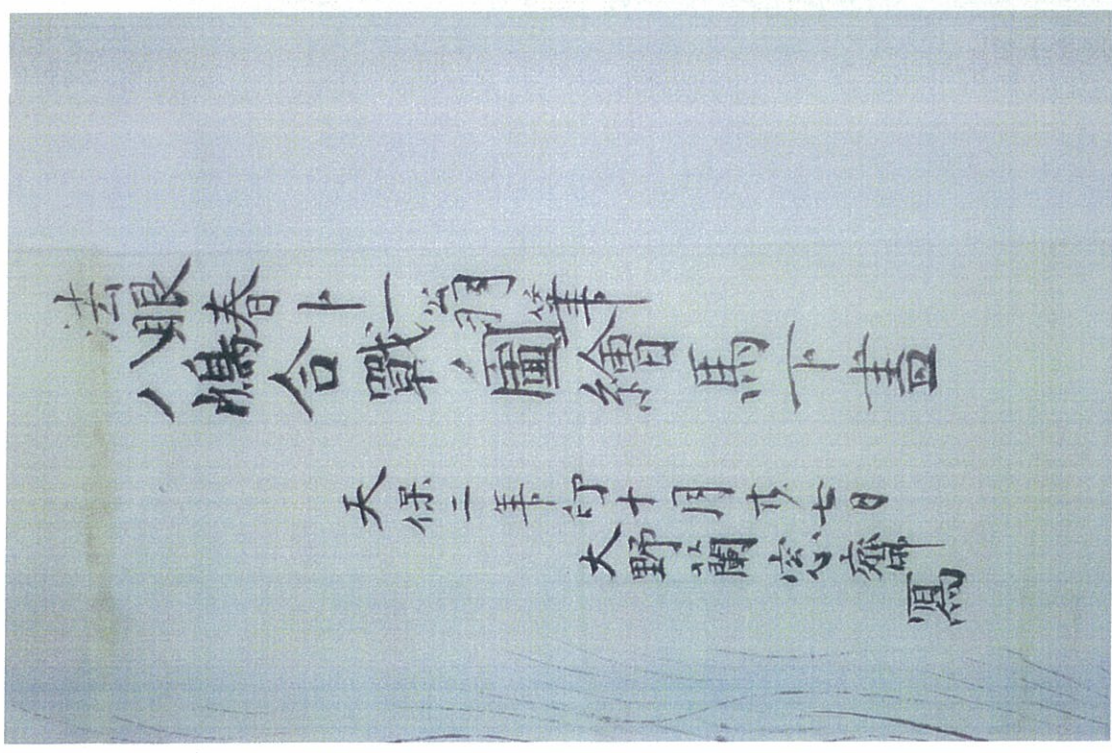 法眼春卜一翁筆
八嶋合戰ノ圖繪馬下畫
天保二年卯十月廿七日
大野蘭窓齋寫